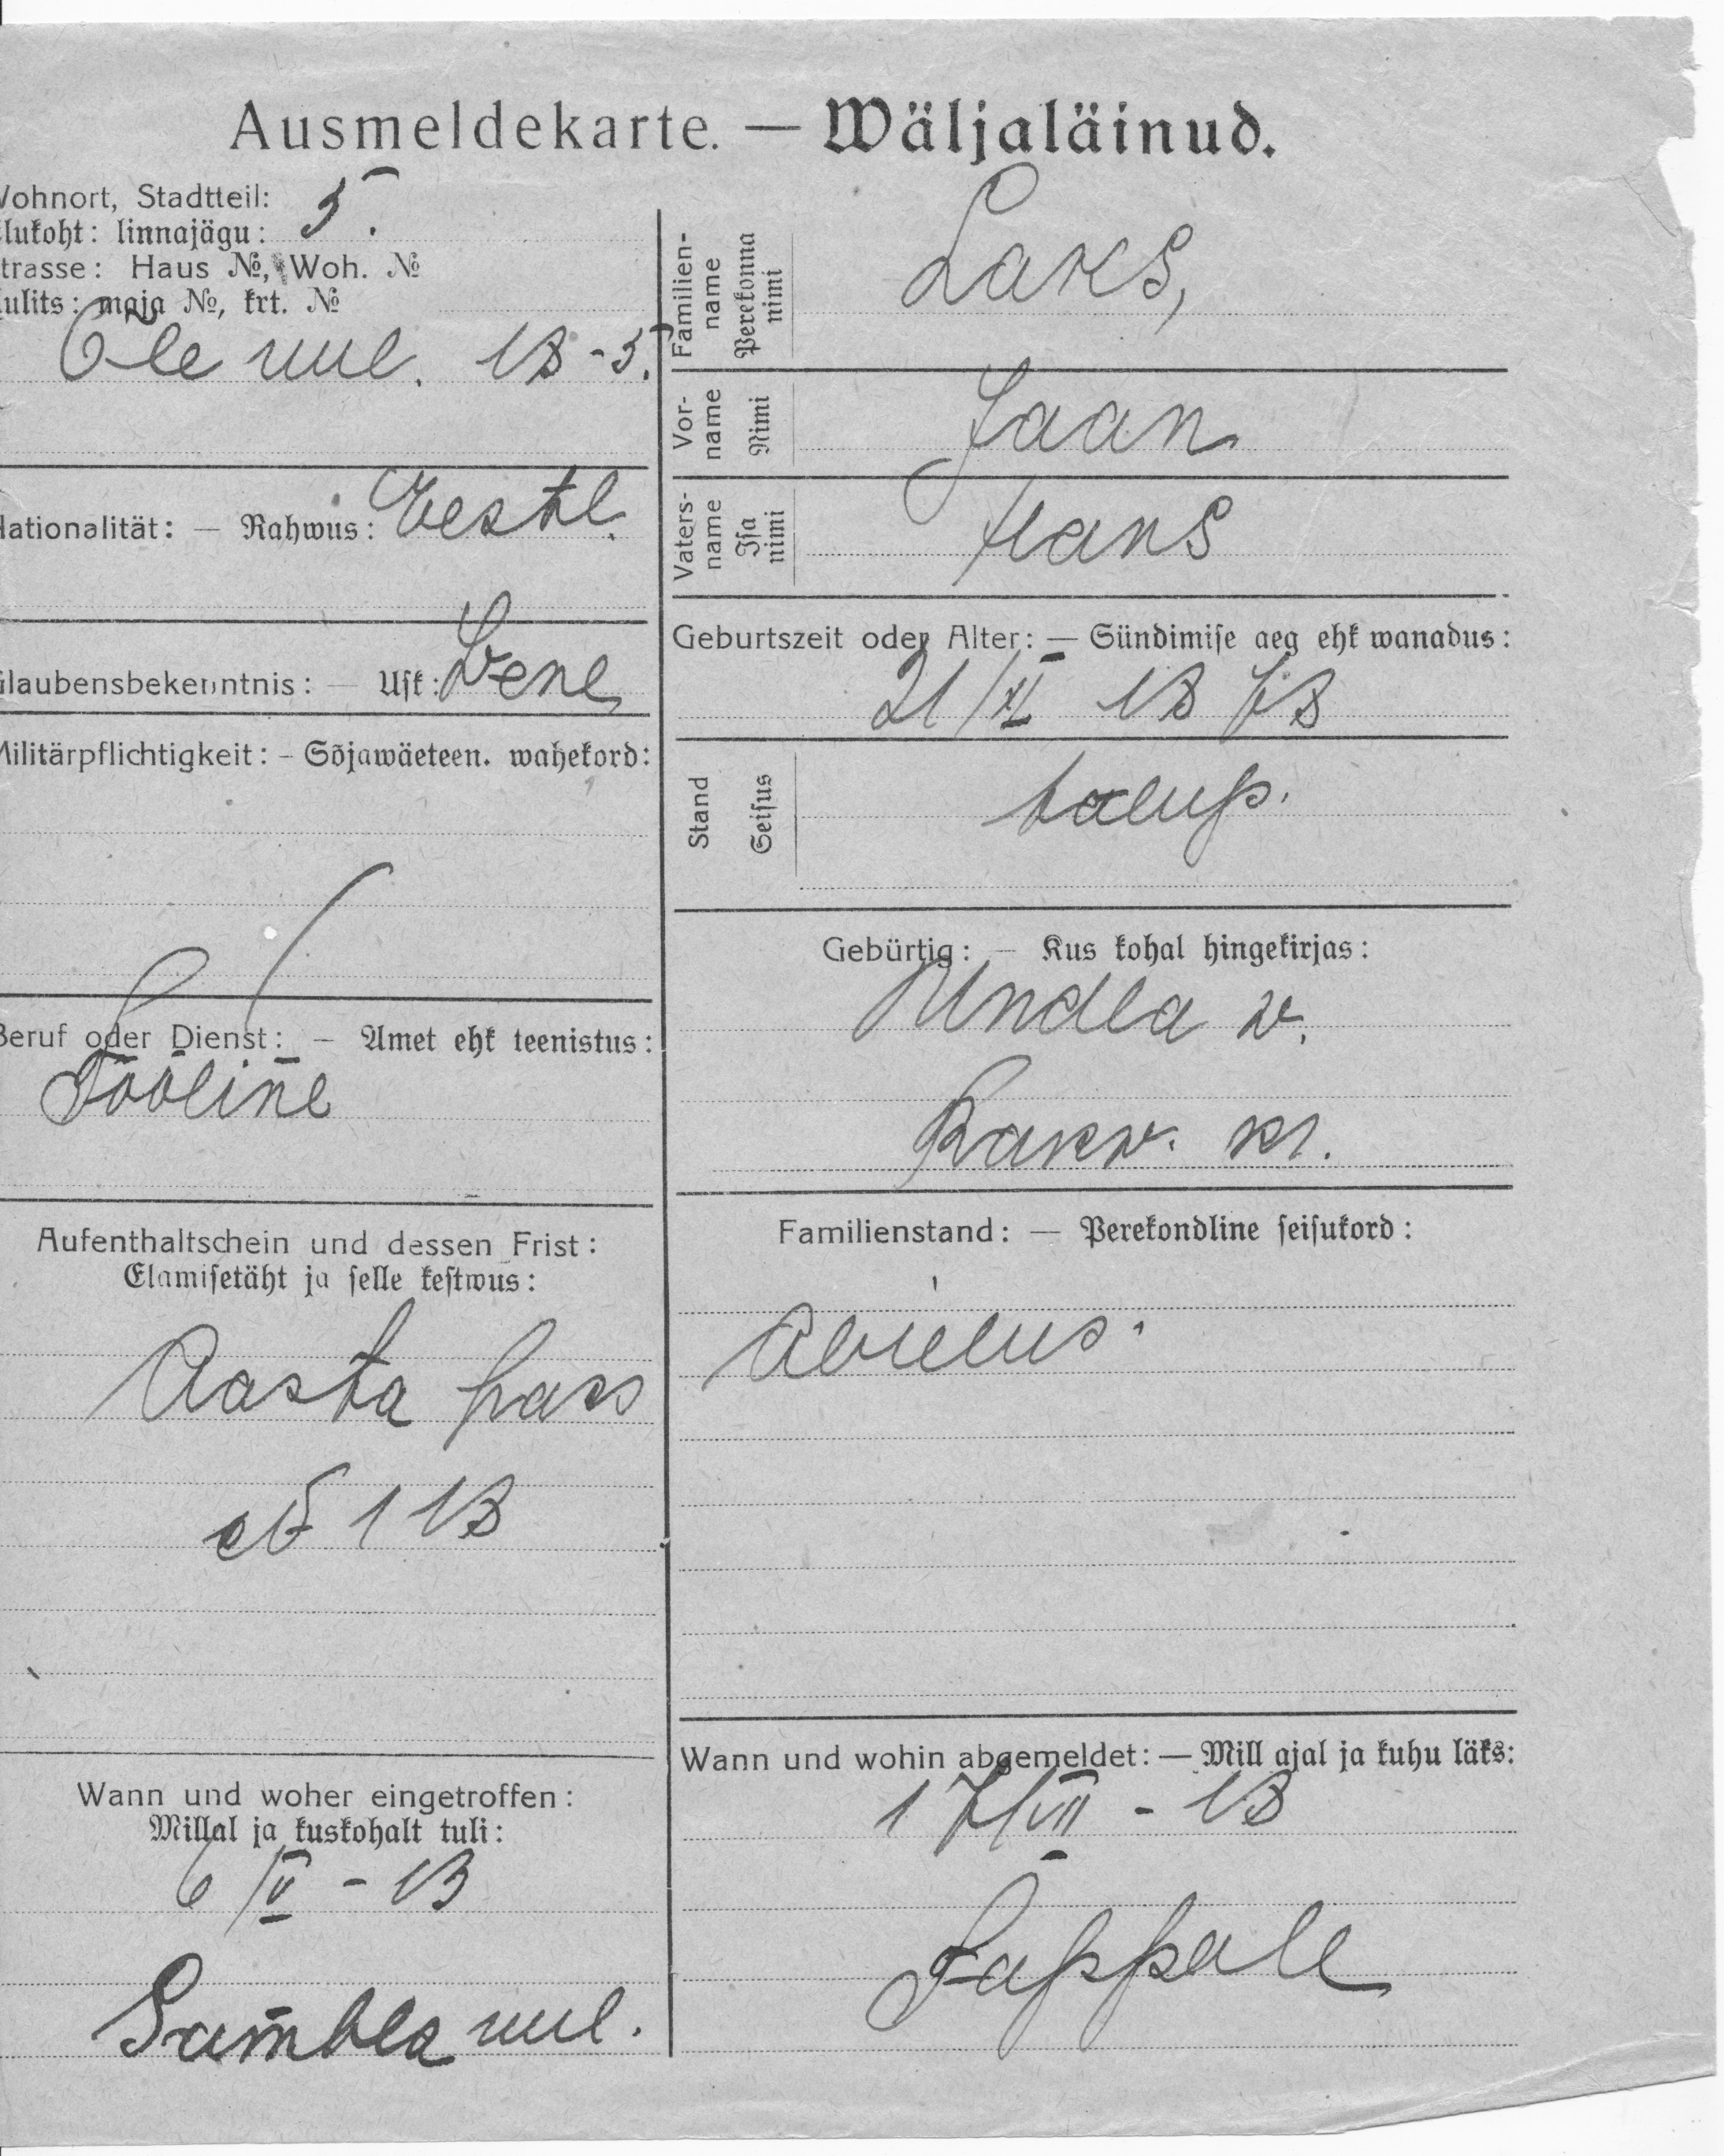 Ausmeldekarte. — Wäljaläinud.
Wohnort, Stadtteil:
Elukoht: linnajägu: 5.
Strasse: Haus №, Woh. №
Uulits: maja №, krt. №
Õle uul. 18-5.
Nationalität: — Rahwus: Eestl.
Glaubensbekenntnis: — Usk: Vene
Militärpflichtigkeit: - Sõjawäeteen. wahekord:
Beruf oder Dienst: — Amet ehk teenistus:
Tööline
Aufenthaltschein und dessen Frist:
Elamisetäht ja selle kestwus:
Aasta pass
№ 118
Wann und woher eingetroffen:
Millal ja kuskohalt tuli:
6/V - 18
Sambla uul.
Familien-
name
Perekonna
nimi
Laks,
Vor-
name
Nimi
Jaan
Vaters-
name
Isa
nimi
Hans
Geburtszeit oder Alter: — Sündimise aeg ehk wanadus:
21/XI 1878
Stand
Seisus
talup.
Gebürtig: — Kus kohal hingekirjas:
Undla v.
Rakv. kr.
Familienstand: — Perekondline seisukord:
Abielus.
Wann und wohin abgemeldet: — Mill ajal ja kuhu läks:
17/VII - 18